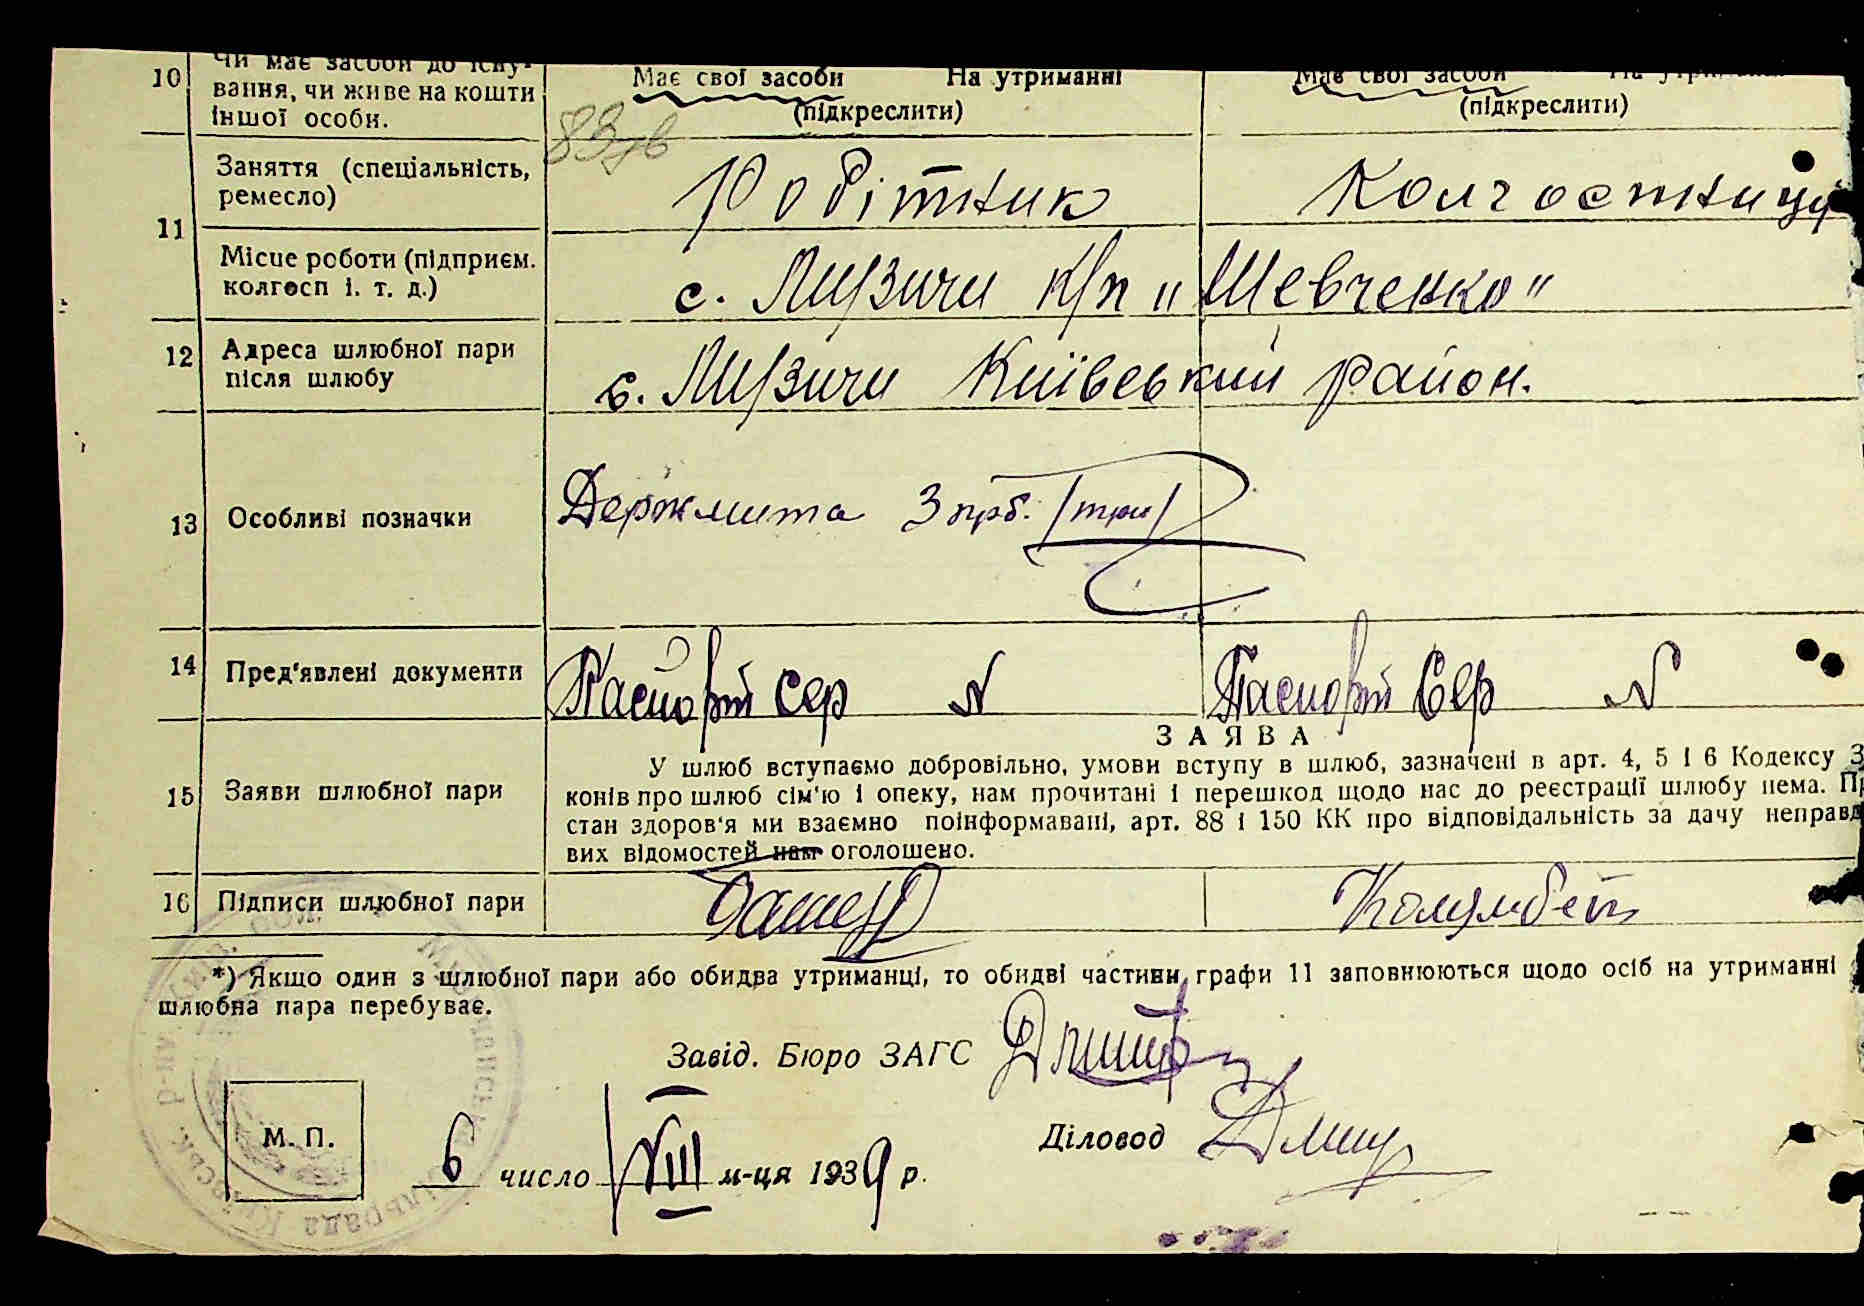 10 Чи має засоби до існування, чи живе на кошти іншої особи.
Має свої засоби На утриманні
(підкреслити)
Має свої засоби На утриманні
(підкреслити)
11 Заняття (спеціальність, ремесло)
Робітник
Колгоспниця
Місце роботи (підприєм. колгосп і. т. д.)
с. Музичи к/г „Шевченко"
12 Адреса шлюбної пари після шлюбу
с. Музичи Київський район.
13 Особливі позначки
Держмита 3 крб. /три/
14 Пред'явлені документи
Паспорт сер N
Паспорт Сер N
ЗАЯВА
15 Заяви шлюбної пари
У шлюб вступаємо добровільно, умови вступу в шлюб, зазначені в арт. 4, 5 і 6 Кодексу З
конів про шлюб сім'ю і опеку, нам прочитані і перешкод щодо нас до реєстрації шлюбу нема. Пр
стан здоров'я ми взаємно поінформавані, арт. 88 і 150 КК про відповідальність за дачу неправд
вих відомостей нам оголошено.
16 Підписи шлюбної пари
*) Якщо один з шлюбної пари або обидва утриманці, то обидві частини графи 11 заповнюються щодо осіб на утриманні
шлюбна пара перебуває.
Завід. Бюро ЗАГС
Діловод
М. П.
6 число VIII м-ця 1939 р.